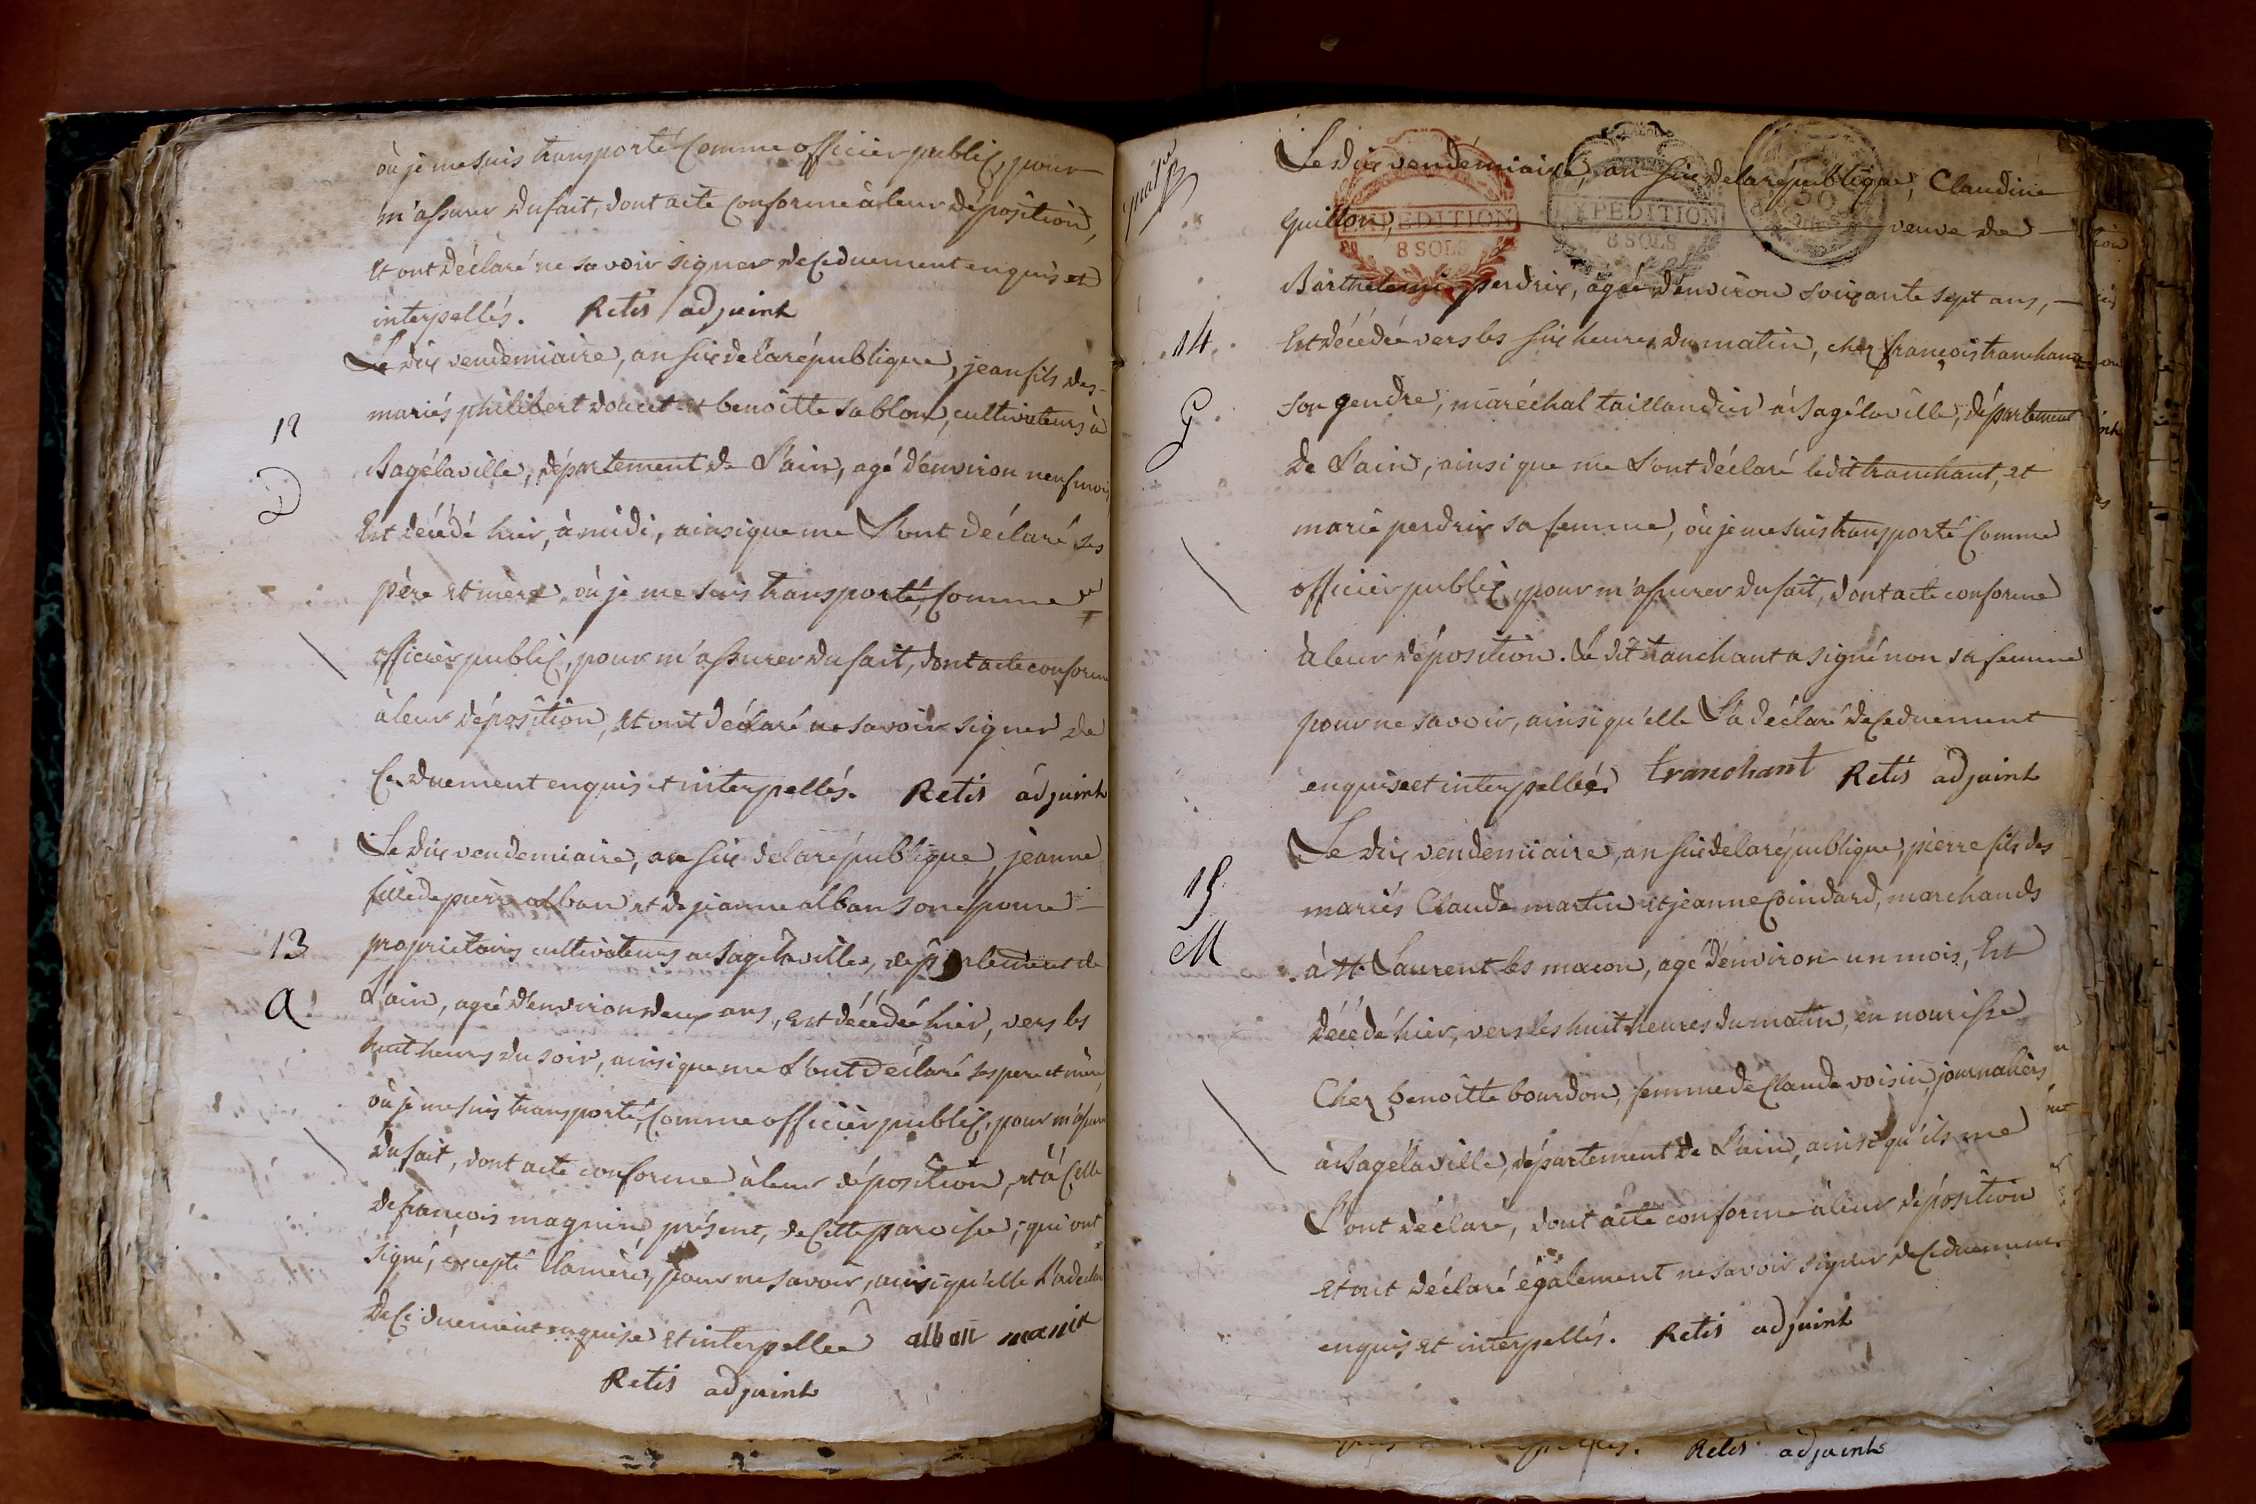 où je me suis transporté Comme officier public, pour
m'assurer du fait, dont acte conforme à leur déposition,
Et ont déclaré ne savoir signer de Ce duement enquis et
interpellés. Retis adjoint
Le dix vendemiaire, an six de la république, jean fils des
mariés philibert doucet et benoitte sablon, cultivateurs à
12
Bagélaville, département de L'ain, agé d'environ neuf mois
D
Est décédé hier, à midi, ainsi que me L'ont déclaré ses
père et mère, où je me suis transporté, Comme
officier public, pour m'assurer du fait, dont acte conforme
à leur déposition, Et ont déclaré ne savoir signer de
Ce duement enquis et interpellés. Retis adjoint
Le dix vendemiaire, an six de la république, jeanne
fille de pierre alban et de jeanne alban son epouse
13
proprietaires cultivateurs a Bagélaville, département de
a
L'ain, agée d'environ deux ans, Est décédée hier, vers les
huit heures du soir, ainsi que me L'ont déclaré ses pere et mère,
où je me suis transporté, Comme officier public, pour m'assurer
du fait, dont acte conforme à leur déposition, et à Celle
de françois magnin, présent, de Cette paroisse, qui ont
signé, excepté la mère, pour ne savoir, ainsi qu'elle L'a déclaré
de Ce duement enquise et interpellée alban manin
Retis adjoint
Le dix vendémiaire, an six de la république, Claudine
Guillon, veuve de
EXPEDITION
8 SOLS
EXPEDITION
8 SOLS
Barthelemi perdrix, agée d'environ soixante sept ans,
14
Est décédée vers les six heures du matin, chez françois tranchant
G
son gendre, maréchal taillandier à Bagélaville, département
de L'ain, ainsi que me L'ont déclaré ledit tranchant, et
marie perdrix sa femme, où je me suis transporté Comme
officier public, pour m'assurer du fait, dont acte conforme
à leur déposition. Le dit tranchant a signé non sa femme
pour ne savoir, ainsi qu'elle L'a déclaré de Ce duement
enquise et interpellée. tranchant Retis adjoint
Le dix vendemiaire, an six de la république, pierre fils des
15
mariés Claude martin et jeanne Coindard, marchands
M
à St. Laurent les macon, agé d'environ un mois, Est
décédé hier, vers les huit heures du matin, en nourisse
Chez benoitte bourdon, femme de Claude voisin, journaliers
à Bagélaville, département de L'ain, ainsi qu'ils me
L'ont déclaré, dont acte conforme à leur déposition
Et ont déclaré également ne savoir signer de Ce duement
enquis et interpellés. Retis adjoint
Retis adjoint